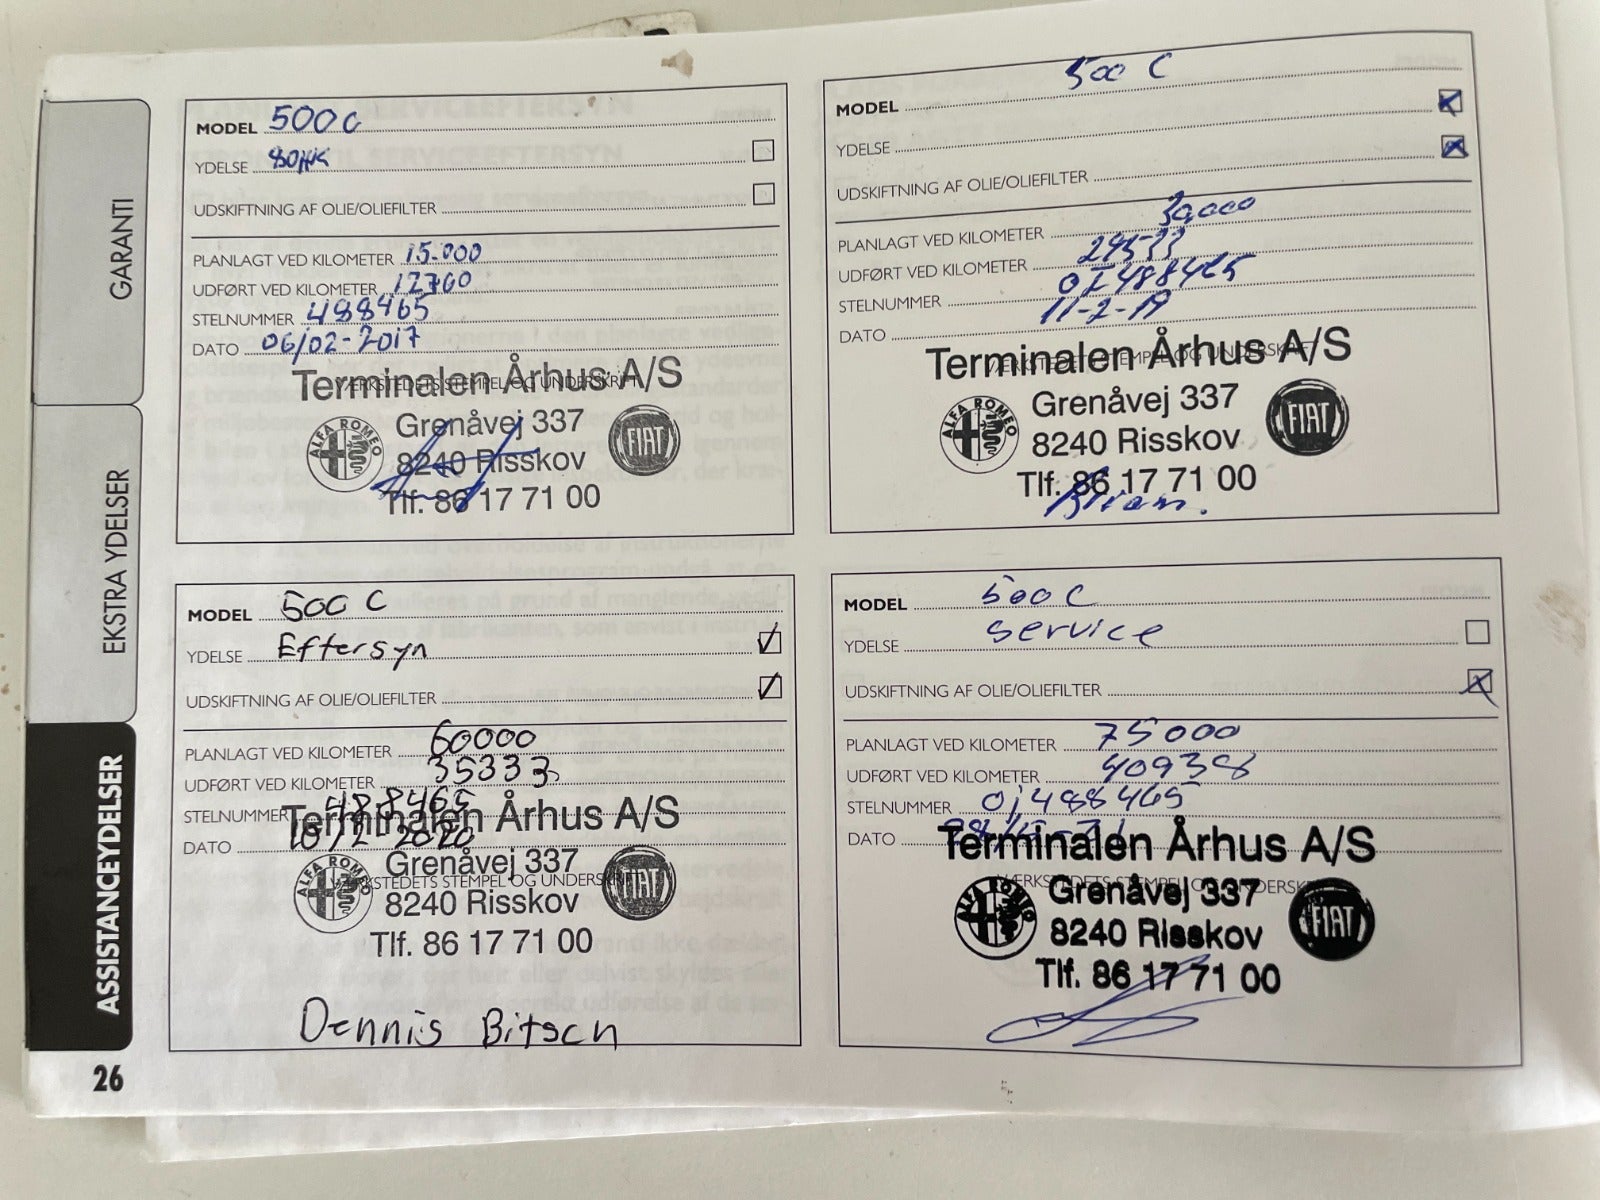 GARANTI
EKSTRA YDELSER
ASSISTANCEYDELSER
MODEL 500 C
YDELSE
UDSKIFTNING AF OLIE/OLIEFILTER
PLANLAGT VED KILOMETER 15.000
UDFØRT VED KILOMETER 12760
STELNUMMER 488465
DATO 06/02-2017
VÆRKSTEDETS STEMPEL OG UNDERSKRIFT
Terminalen Århus A/S
ALFA ROMEO
Grenåvej 337
FIAT
8240 Risskov
Tlf. 86 17 71 00
MODEL 500 C
YDELSE
UDSKIFTNING AF OLIE/OLIEFILTER
PLANLAGT VED KILOMETER 30,000
UDFØRT VED KILOMETER
STELNUMMER
DATO 11-2-19
VÆRKSTEDETS STEMPEL OG UNDERSKRIFT
Terminalen Århus A/S
ALFA ROMEO
Grenåvej 337
FIAT
8240 Risskov
Tlf. 86 17 71 00
MODEL 500 C
YDELSE Eftersyn
UDSKIFTNING AF OLIE/OLIEFILTER
PLANLAGT VED KILOMETER 60000
UDFØRT VED KILOMETER 35333
STELNUMMER 488465
DATO 18/2 2020
Terminalen Århus A/S
VÆRKSTEDETS STEMPEL OG UNDERSKRIFT
ALFA ROMEO
Grenåvej 337
FIAT
8240 Risskov
Tlf. 86 17 71 00
Dennis Bitsch
MODEL 500 C
YDELSE Service
UDSKIFTNING AF OLIE/OLIEFILTER
PLANLAGT VED KILOMETER 75000
UDFØRT VED KILOMETER 40938
STELNUMMER 0J488465
DATO
Terminalen Århus A/S
VÆRKSTEDETS STEMPEL OG UNDERSKRIFT
ALFA ROMEO
Grenåvej 337
FIAT
8240 Risskov
Tlf. 86 17 71 00
26